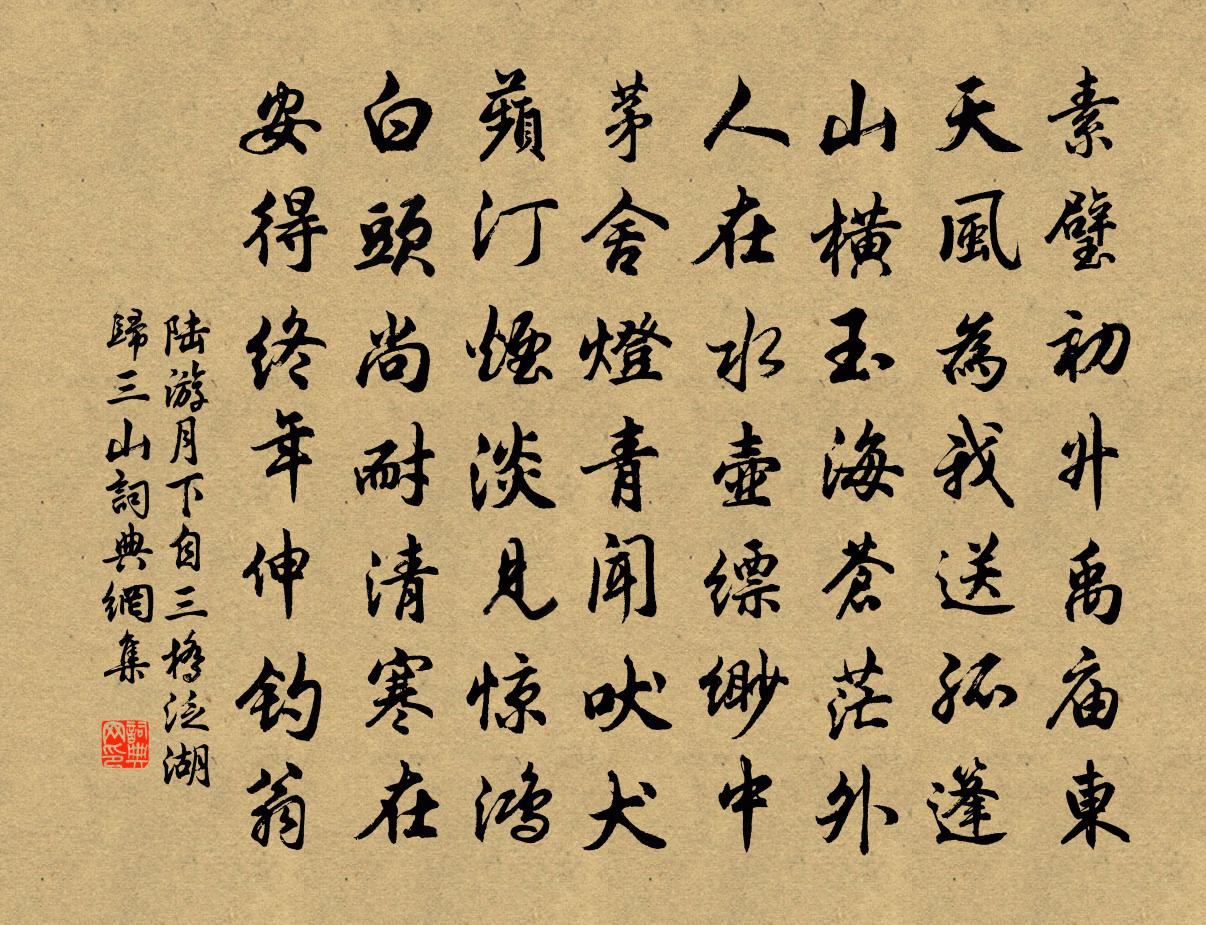 素璧初升禹庙東
天風為我送孤蓬
山橫玉海蒼茫外
人在水壺縹緲中
茅舍燈青聞吠犬
蘋汀煙淡見惊鴻
白頭尚耐清寒在
安得終年伸釣翁
陆游月下自三橋泛湖
歸三山詞典網集
詞典
网印